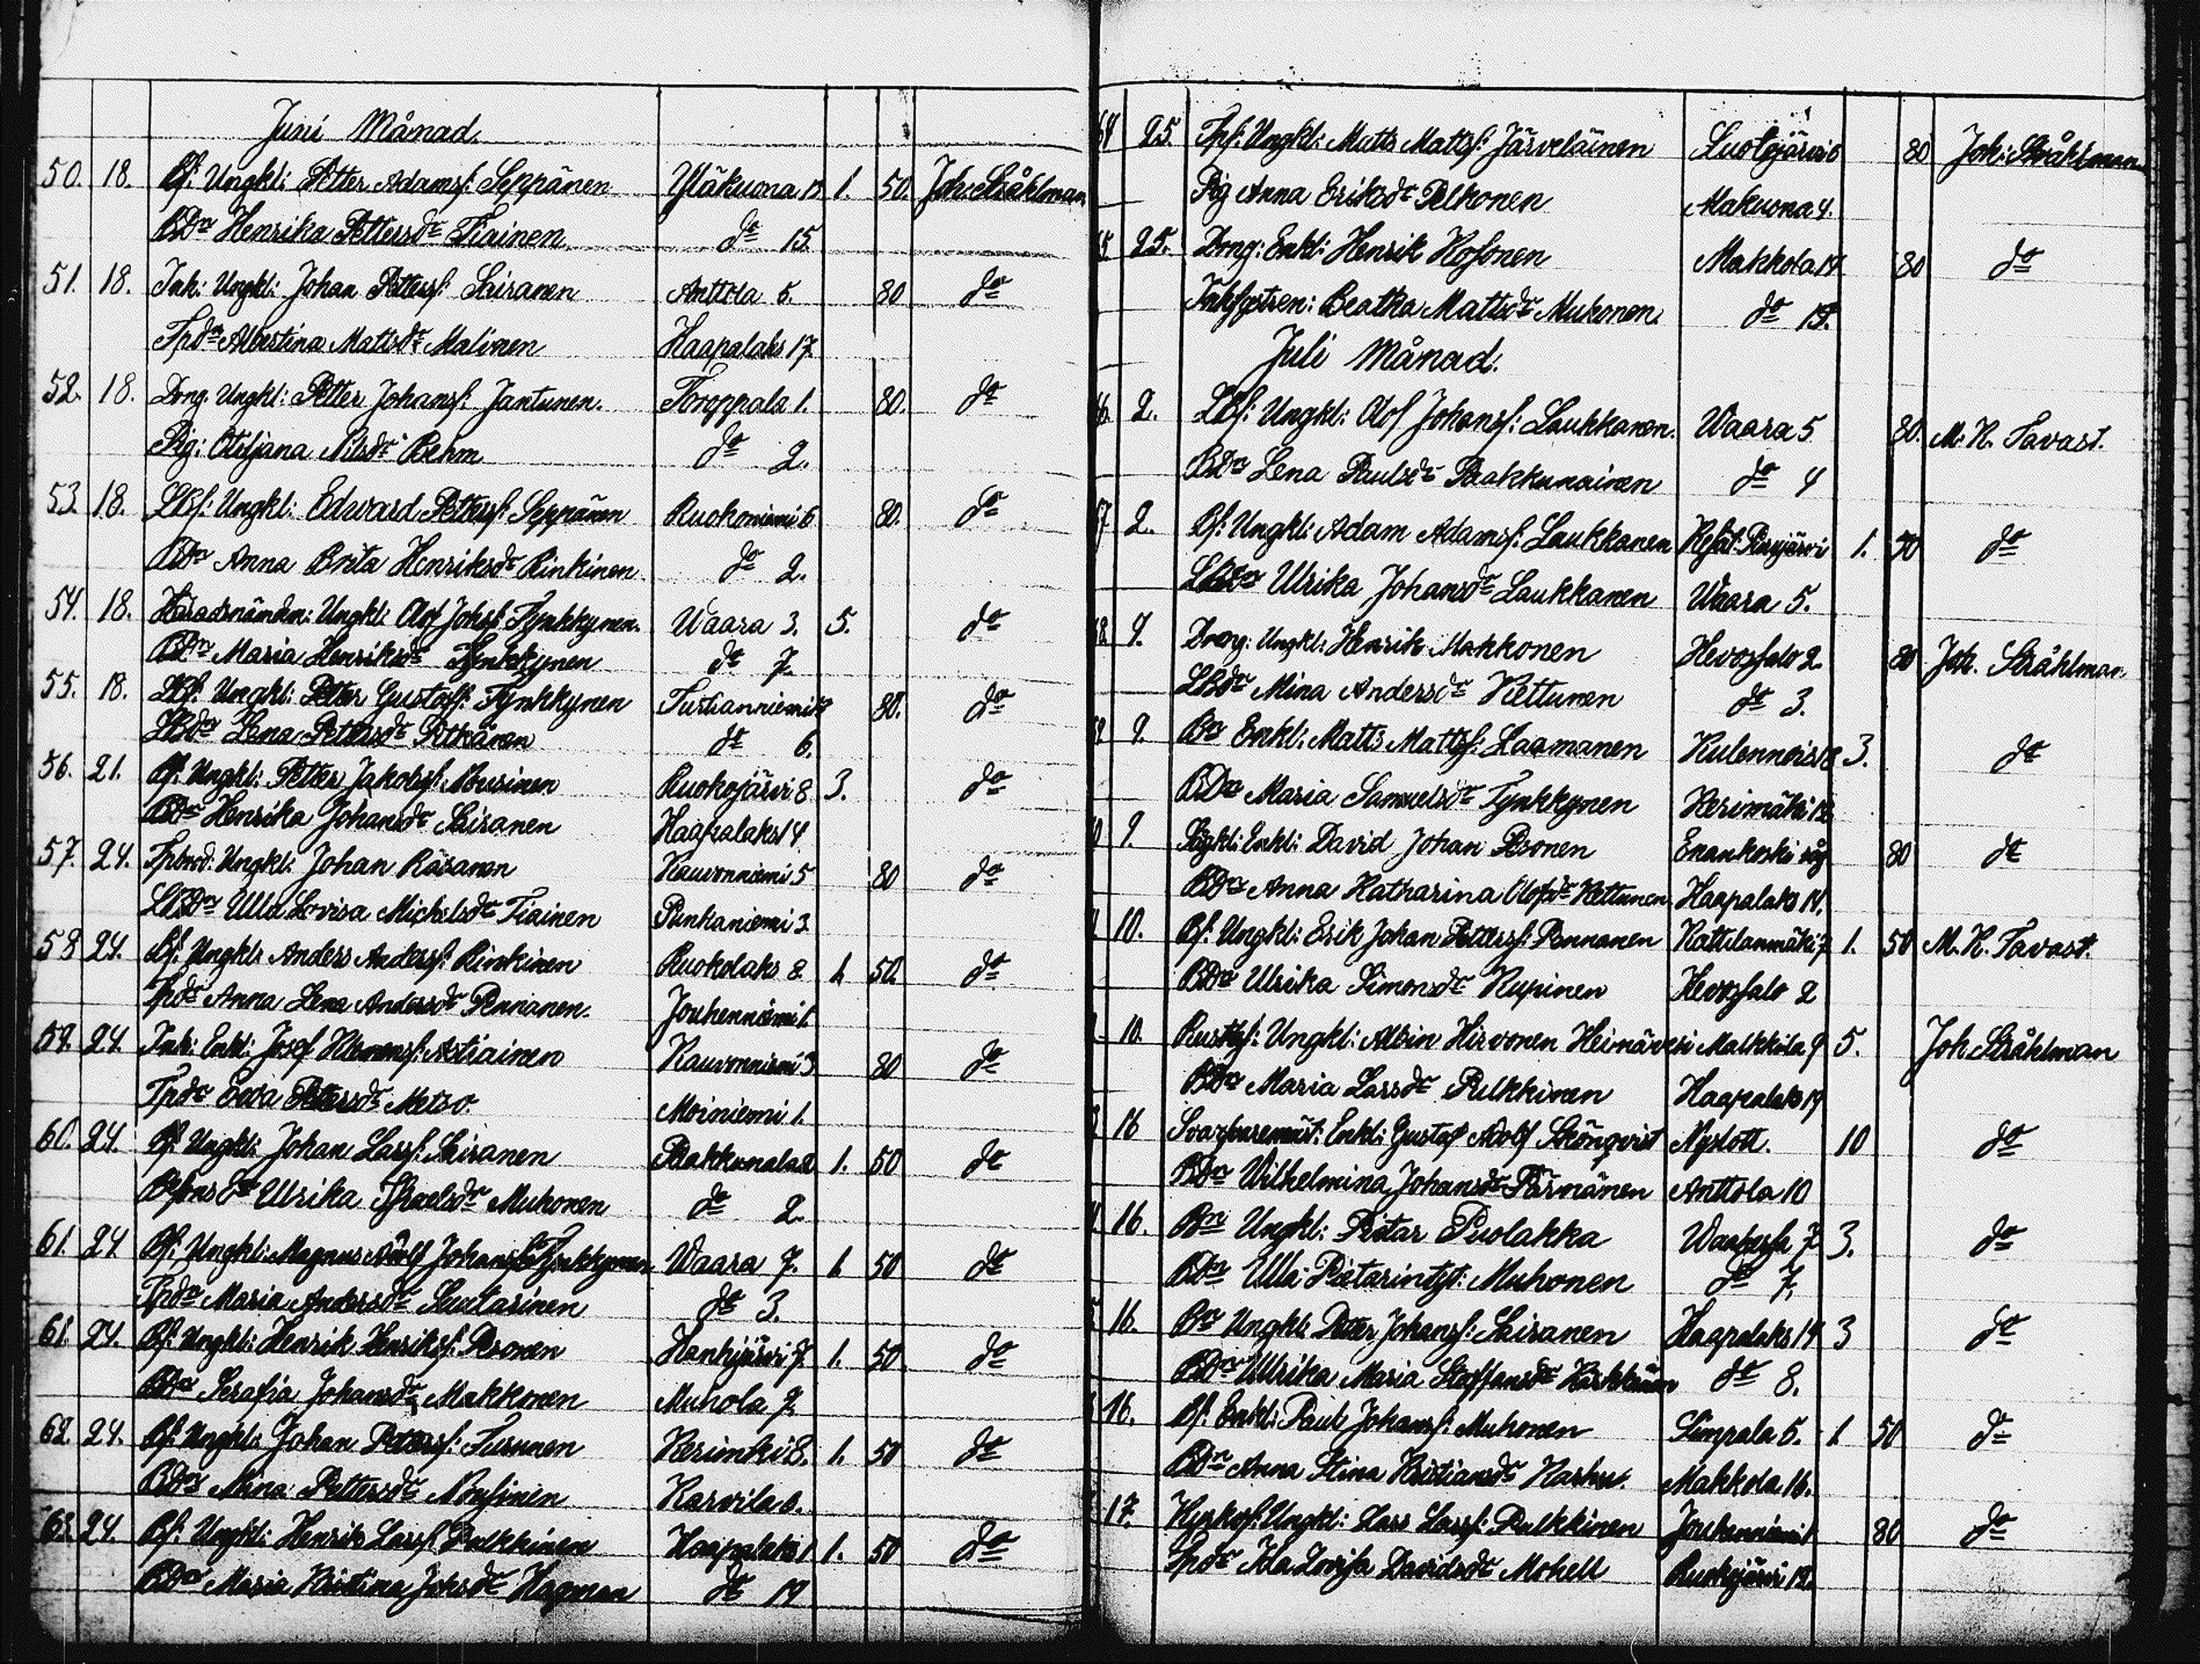 Juni Månad.
50. 18. Bs: Ungkl: Petter Adamss: Seppänen Yläkuona 13 1. 50. Joh: Stråhlman
BDr Henrika Pettersdr Tiainen do 15.
51. 18. Inh: Ungkl: Johan Petterss: Sairanen Anttola 5. 80 do
Tpdr Albertina Mattsdr Malinen Haapalaks 17.
52. 18. Dreng: Ungkl: Petter Johanss: Jantunen. Torppala 1. 80. do
Pig: Otiljana Nilsdr Behm do 2.
53. 18. LBs: Ungkl: Edward Petterss: Seppänen Ruokoniemi 6 80. do
BDr Anna Brita Henriksdr Rinkinen do 2.
54. 18. Häradsnämdm: Ungkl: Olof Johss: Tynkkynen. Waara 3. 5. do
BDr Maria Henriksdr Tynkkynen do 7.
55. 18. LBs: Ungkl: Petter Gustafss: Tynkkynen Tuttianniemi 80. do
LBdr Lena Pettersdr Pitkänen do 6.
56. 21. Bs: Ungkl: Petter Jakobss: Nousinen Ruokojärvi 8 3. do
BDr Henrika Johansdr Sairanen Haapalaks 14.
57. 24. Ungkl: Johan Räsänen Kauvonniemi 5 80 do
LBDr Ulla Lovisa Michelsdr Tiainen Punkaniemi 3.
58 24. Bs: Ungkl: Anders Anderss: Rinkinen Ruokolaks 8. 1. 50. do
Tpdr Anna Lena Andersdr Pennanen. Jouhenniemi 1.
59. 24. Inh: Enkl: Josef Astiainen Kauvonniemi 3 80 do
Tpdr Ewa Pettersdr Metso. Moiniemi 1.
60. 24. Bs: Ungkl: Johan Larss: Sairanen Pakkunala 2 1. 50 do
Ulrika Muhonen do 2.
61. 24 Bs: Ungkl: Magnus Adolf Johanss: Tynkkynen Waara 7. 1. 50 do
Tpdr Maria Andersdr Suutarinen do 3.
61. 24. Bs: Ungkl: Henrik Henrikss: Pesonen Hanhijärvi 7. 1. 50. do
BDr Serafia Johansdr Makkonen Muhola 9.
62. 24. Bs: Ungkl: Johan Petterss: Turunen Kerimäki 8. 1. 50 do
BDr Mina Pettersdr Nousinen Karvila 6.
63. 24. Bs: Ungkl: Henrik Larss: Pulkkinen Haapalaks 1 1. 50 do
BDr Maria Kristina Johsdr Hagman do 19
64 25. Tps: Ungkl: Matts Mattss: Järveläinen Luotojärvi 6 80 Joh: Stråhlman
Pig Anna Eriksdr Pelkonen Makuona 4.
65 25. Dreng: Enkl: Henrik Kosonen Makkola 14 80 do
Beatha Mattsdr Mukonen. do 15.
Juli Månad.
66. 2. LBs: Ungkl: Olof Johanss: Laukkanen. Waara 5 80. M. K. Tavast.
BDr Lena Paulsdr Pakkunainen do 4
67 2. Bs: Ungkl: Adam Adamss: Laukkanen 1. 50 do
LBdr Ulrika Johansdr Laukkanen Waara 5.
68. 9. Dreng: Ungkl: Henrik Makkonen Hevossalo 2. 80 Joh. Stråhlman
LBdr Mina Andersdr Kettunen do 3.
69 9. Br Enkl: Matts Mattss: Laamanen Kulennois 18 3. do
BDr Maria Samuelsdr Tynkkynen Kerimäki 12.
70 9. Enkl: David Johan Pesonen Enankoski såg 80 do
BDr Anna Katharina Olofsdr Kettunen Haapalaks 14.
10. Bs: Ungkl: Erik Johan Petterss: Pennanen Kattilanmäki 7 1. 50 M. K. Tavast.
BDr Ulrika Simonsdr Kupinen Hevossalo 2
10. Rusths: Ungkl: Albin Hirvonen Heinävesi Malkkila 9 5. Joh Stråhlman
BDr Maria Larsdr Pulkkinen Haapalaks 19
16 Enkl: Gustaf Adolf Skönqvist Nyslott. 10 do
BDr Wilhelmina Johansdr Pärnänen Anttola 10
16. Bn Ungkl: Pietar Puolakka 7 3. do
BDr Ulla Pietarintyt: Muhonen do 7.
16. Br Ungkl: Petter Johanss: Sairanen Haapalaks 14 3 do
BDr Ulrika Maria Staffansdr do 8.
16. Bs: Enkl: Paul Johanss: Muhonen Simpala 5. 1 50 do
BDr Anna Stina Kristiansdr Karhu. Makkola 16.
17. Ungkl: Lars Larss: Pulkkinen Jouhenniemi 1 80 do
Tpdr Ida Lovisa Davidsdr Mohell Ruokojärvi 12.